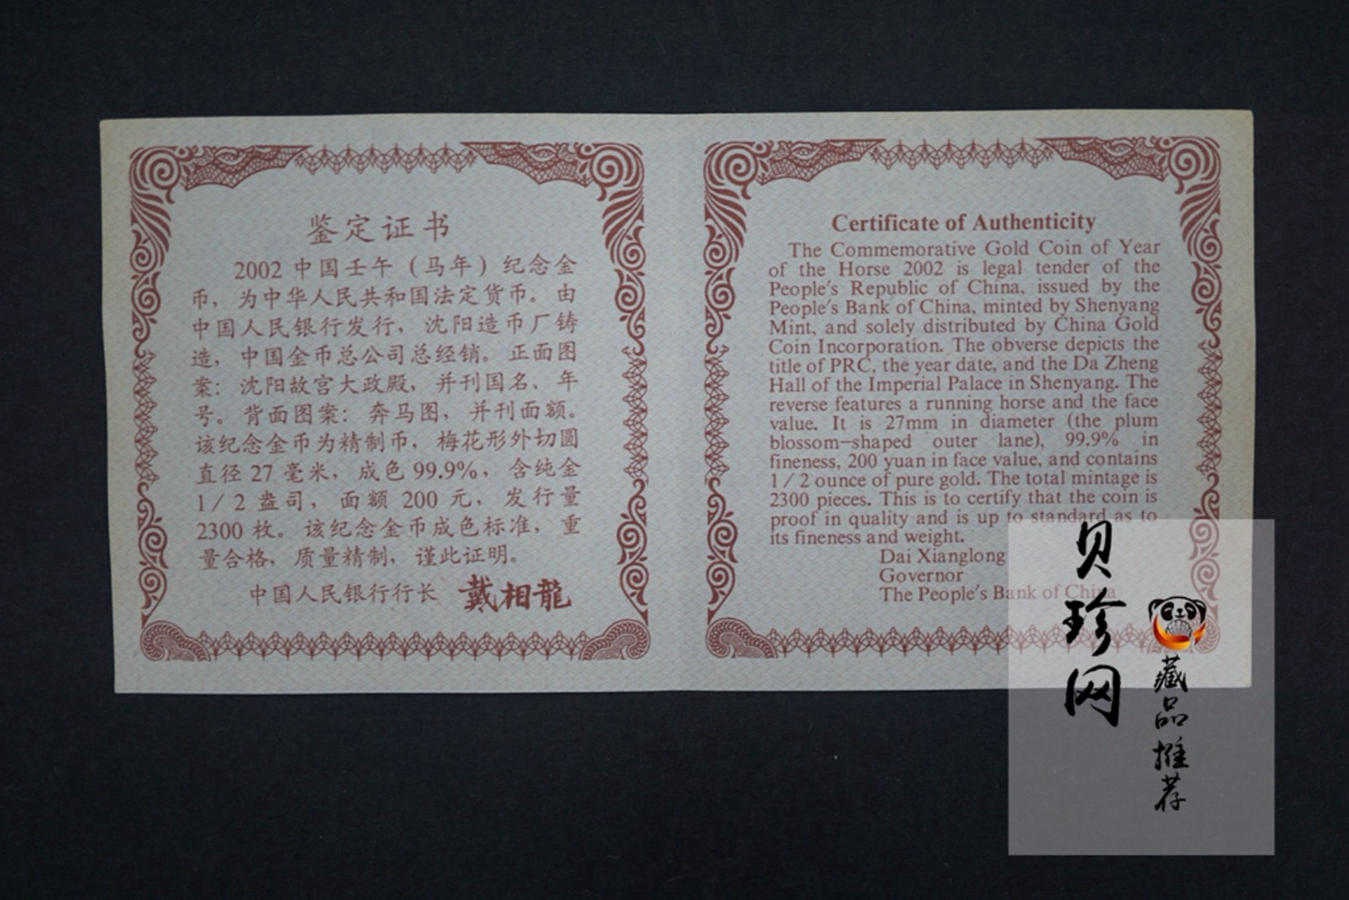 鉴定证书
2002 中国壬午（马年）纪念金
币，为中华人民共和国法定货币。由
中国人民银行发行，沈阳造币厂铸
造，中国金币总公司总经销。正面图
案：沈阳故宫大政殿，并刊国名、年
号。背面图案：奔马图，并刊面额。
该纪念金币为精制币，梅花形外切圆
直径 27 毫米，成色 99.9%，含纯金
1/2 盎司，面额 200 元，发行量
2300 枚。该纪念金币成色标准，重
量合格，质量精制，谨此证明。
中国人民银行行长 戴相龍
Certificate of Authenticity
The Commemorative Gold Coin of Year
of the Horse 2002 is legal tender of the
People's Republic of China, issued by the
People's Bank of China, minted by Shenyang
Mint, and solely distributed by China Gold
Coin Incorporation. The obverse depicts the
title of PRC, the year date, and the Da Zheng
Hall of the Imperial Palace in Shenyang. The
reverse features a running horse and the face
value. It is 27mm in diameter (the plum
blossom-shaped outer lane), 99.9% in
fineness, 200 yuan in face value, and contains
1/2 ounce of pure gold. The total mintage is
2300 pieces. This is to certify that the coin is
proof in quality and is up to standard as to
its fineness and weight.
Dai Xianglong
Governor
The People's Bank of China
贝珍网
藏品推荐